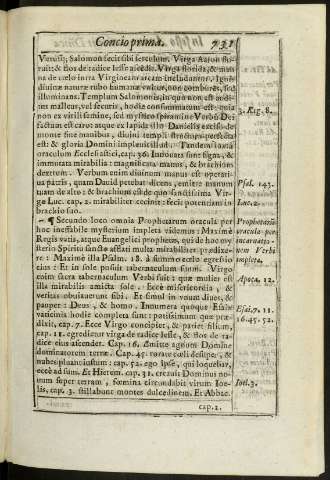 Concio prima. 731
Verus; Salomon fecit sibi ferculum. Virga Aaron floruit;
& flos de radice Iesse ascedit. Virga florida, & manna
de cælo intra Virgineam arcam includantur. Ignis
diuinæ naturæ rubo humanæ vnitur, non comburēs, sed
illuminans. Templum Salomonis, in quo non est auditus
malleus, vel securis, hodie consummatum est: quia
non ex virili semine, sed mystico spiramine Verbū Dei
factum est caro: atque ex lapis ille Danielis excisus de
monte sine manibus, diuini templi structura perfecta
est: & gloria Domini impleuit illud. Tandem
oraculum Ecclesiastici, cap. 36. Innoua signa, &
immuta mirabilia: magnifica manus, & brachium
dexterum. Verbum enim diuinum manus est operatiua
patris, quam Dauid petebat dicens, emitte manum
tuam de alto: & brachium eiusdē quo sanctissima Virgo
Luc. cap. 2. mirabiliter cecinit: fecit potentiam in
brachio suo.
¶ Secundo loco omnia Prophetarum oracula per
hoc ineffabile mysterium impleta videmus: Maximè
Regis vatis, atque Euangelici prophetæ, qui de hoc mysterio
Spiritu sancto afflati multa mirabiliter prædixere:
Maximè illa Psalm. 18. à summo cœlo egressio
eius: Et in sole posuit tabernaculum suum. Virgo
enim sacra tabernaculum Verbi fuit: quæ mulier est
illa mirabilis amicta sole. Ecce misericordia, &
veritas obuiauerunt sibi. Et simul in vnum diues, &
pauper: Deus, & homo. Innumera quoque Esaiæ
vaticinia hodie completa sunt: potissimum quæ prædixit,
cap. 7. Ecce Virgo concipiet, & pariet filium,
cap. 11. egredietur virga de radice Iesse, & flos de radice
eius ascendet. Cap. 16. Emitte agnum Domine
dominatorem terræ. Cap. 45. rorate cœli desuper, &
nubes pluant iustum: cap. 52. ego ipse, qui loquebar,
ecce adsum. Et Hierem. cap. 31. creauit Dominus nouum
super terram, fœmina circundabit virum Ioelis,
cap. 3. stillabunt montes dulcedinem. Et Abbac.
cap. 2.
3. Reg. 8.
Psal. 143.
Luc. 2.
Prophetarū
oracula per
incarnationem
Verbi
impleta.
Apoca. 12.
Esai. 7. 11.
16. 45. 52.
Ioel. 3.